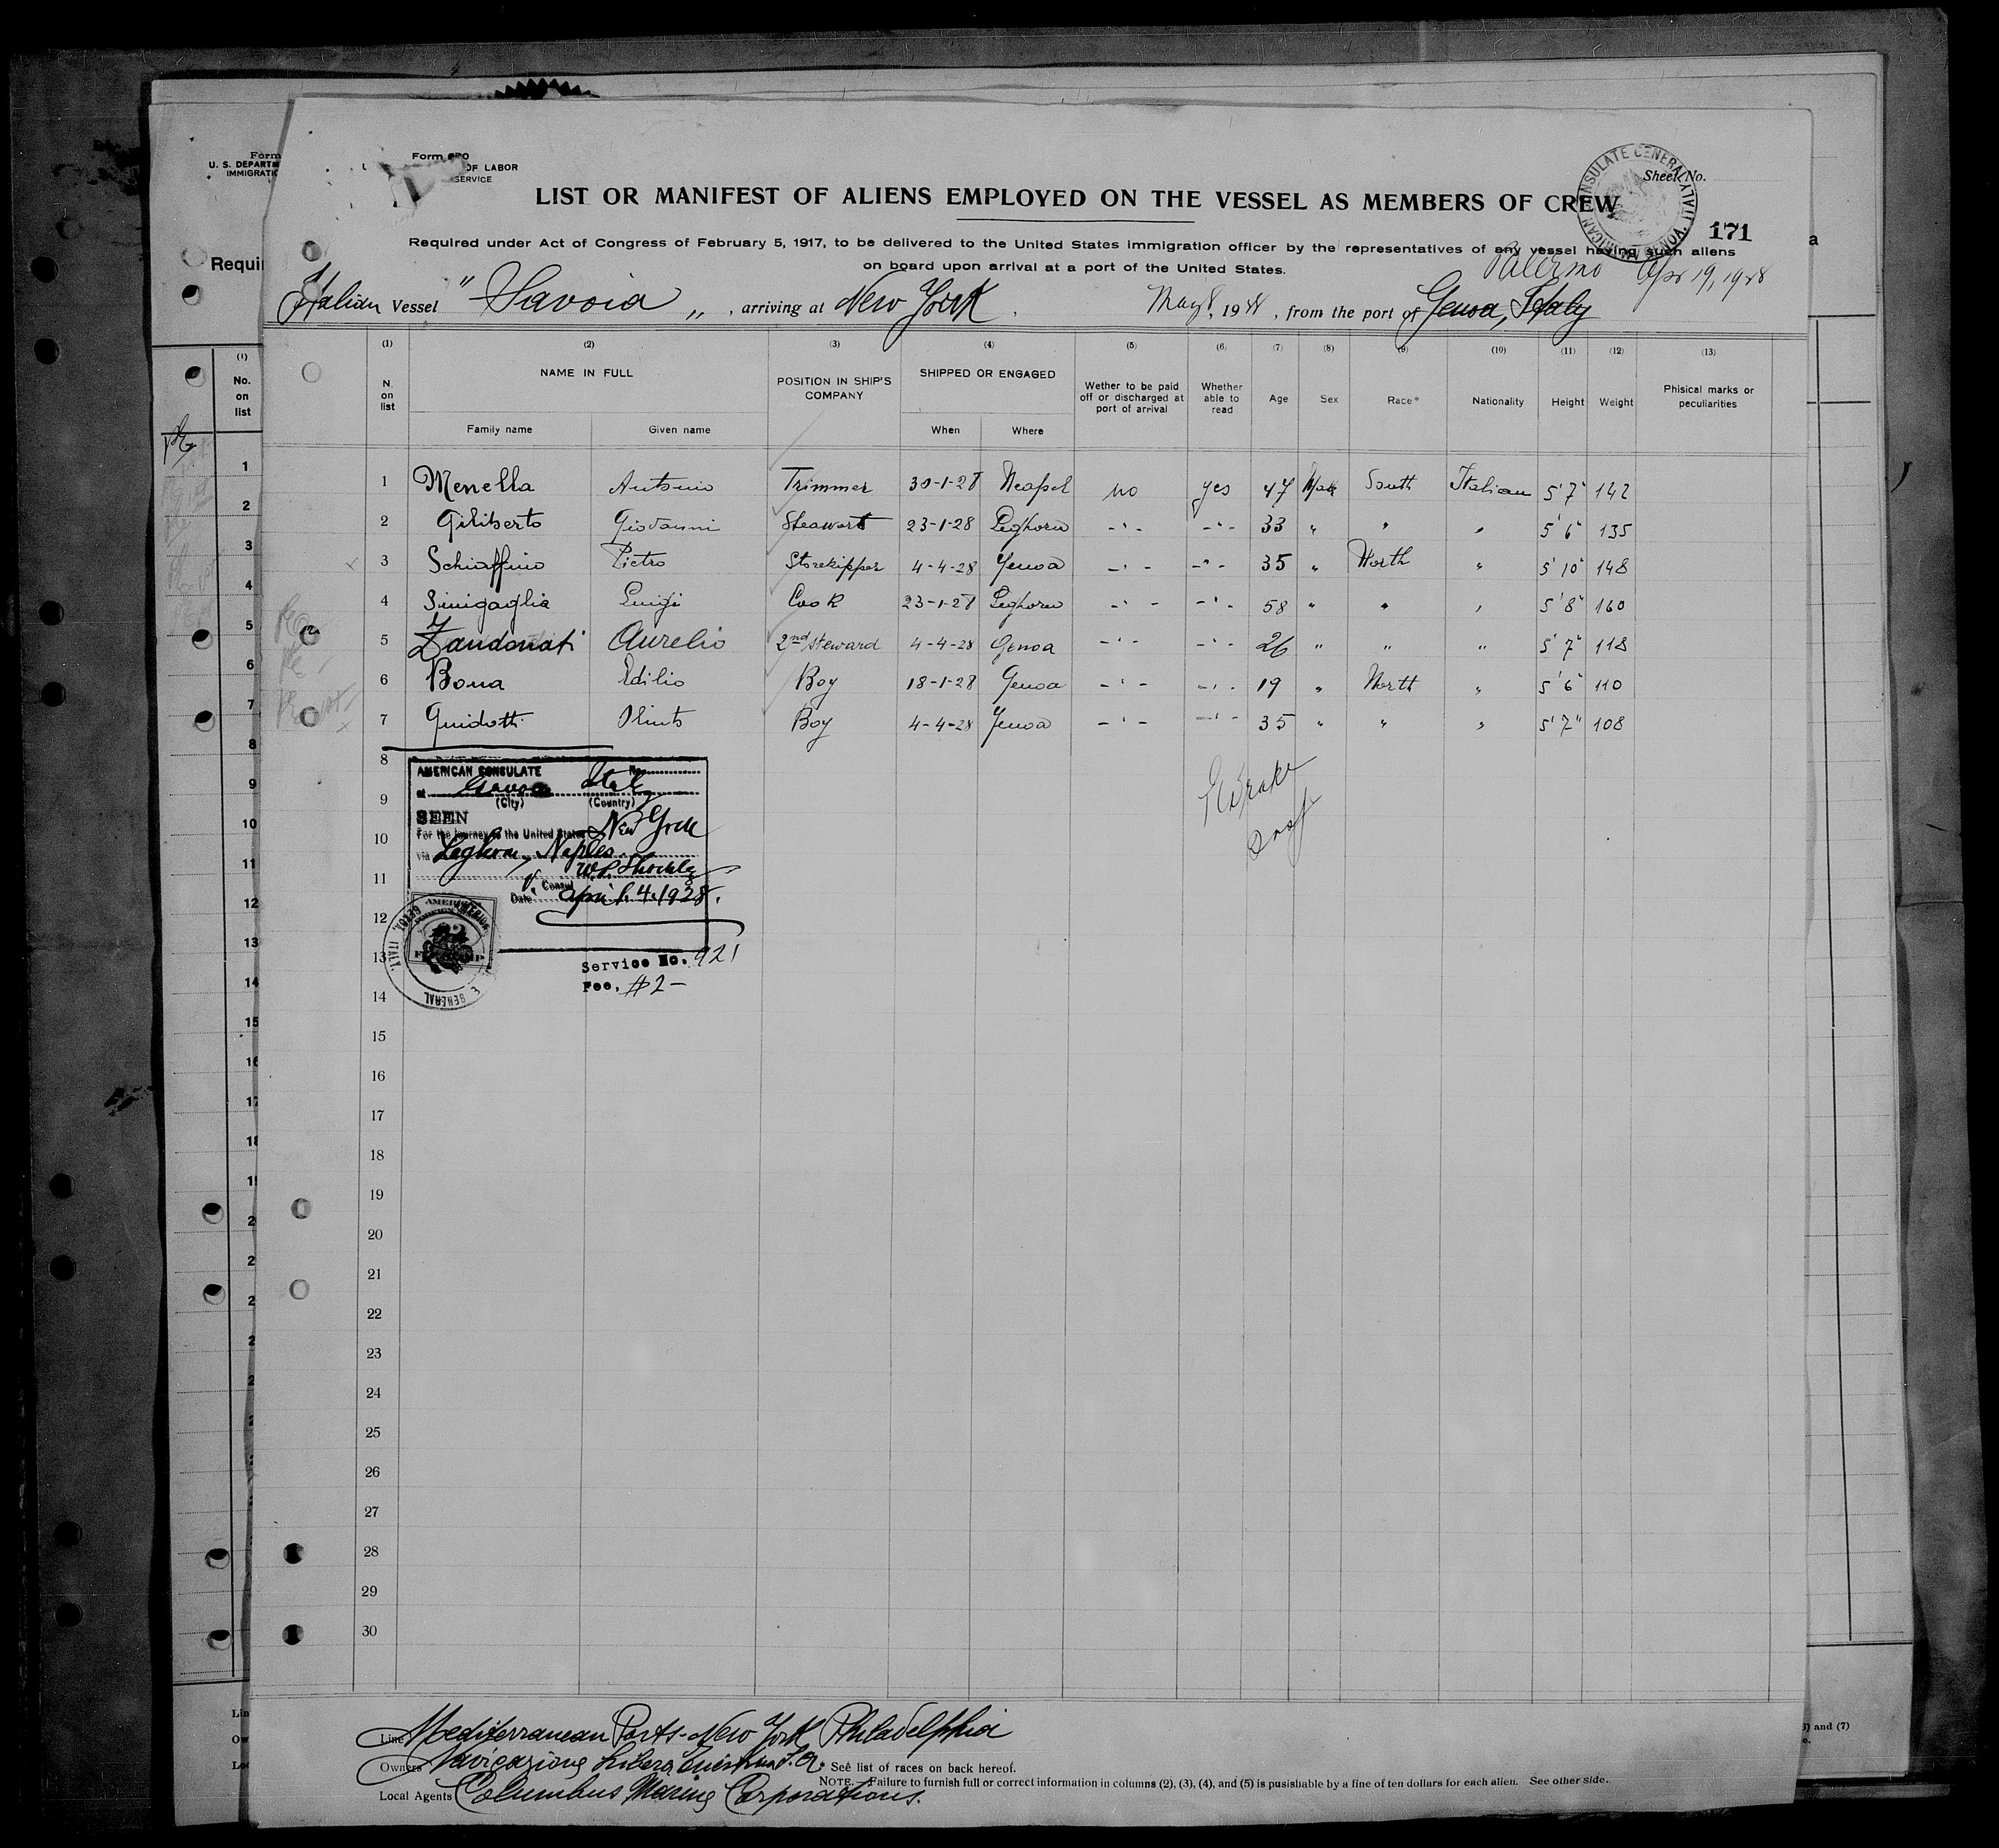 Form
U. S. DEPARTM
IMMIGRATIO
Requi
Form 680
OF LABOR
SERVICE
Sheet No.
LIST OR MANIFEST OF ALIENS EMPLOYED ON THE VESSEL AS MEMBERS OF CREW
171
Required under Act of Congress of February 5, 1917, to be delivered to the United States immigration officer by the representatives of any vessel having such aliens
on board upon arrival at a port of the United States.
Palermo Apr 19, 1928
Italian Vessel "Savoia", arriving at New York May 8, 1928, from the port of Genoa, Italy
(1) (2) (3) (4) (5) (6) (7) (8) (9) (10) (11) (12) (13)
N. on list NAME IN FULL POSITION IN SHIP'S COMPANY SHIPPED OR ENGAGED Wether to be paid off or discharged at port of arrival Whether able to read Age Sex Race* Nationality Height Weight Phisical marks or peculiarities
Family name Given name When Where
1 Menella Antonio Trimmer 30-1-28 Neapel no yes 47 Male South Italian 5'7" 142
2 Giliberto Giovanni Steawart 23-1-28 Leghorn -'- -'- 33 " " " 5'6" 135
3 Schiaffino Pietro Storekipper 4-4-28 Genoa -'- -'- 35 " North " 5'10" 148
4 Sinigaglia Luigi Cook 23-1-28 Leghorn -'- -'- 58 " " " 5'8" 160
5 Zandonati Aurelio 2nd steward 4-4-28 Genoa -'- -'- 26 " " " 5'7" 118
6 Bona Edilio Boy 18-1-28 Genoa -'- -'- 19 " North " 5'6" 110
7 Guidotti Olinto Boy 4-4-28 Genoa -'- -'- 35 " " " 5'7" 108
8
9
10
11
12
13
14
15
16
17
18
19
20
21
22
23
24
25
26
27
28
29
30
AMERICAN CONSULATE No.
at Genoa Italy
(City) (Country)
SEEN
For the journey to the United States New York
via Leghorn, Naples
Consul
Date April 4. 1928.
Service No. 921
Fee, $2-
Line Mediterranean Ports-New York Philadelphia
Owners Navigazione Libera Triestina S.A. * See list of races on back hereof.
NOTE. Failure to furnish full or correct information in columns (2), (3), (4), and (5) is pusishable by a fine of ten dollars for each alien. See other side.
Local Agents Columbus Marine Corporations.